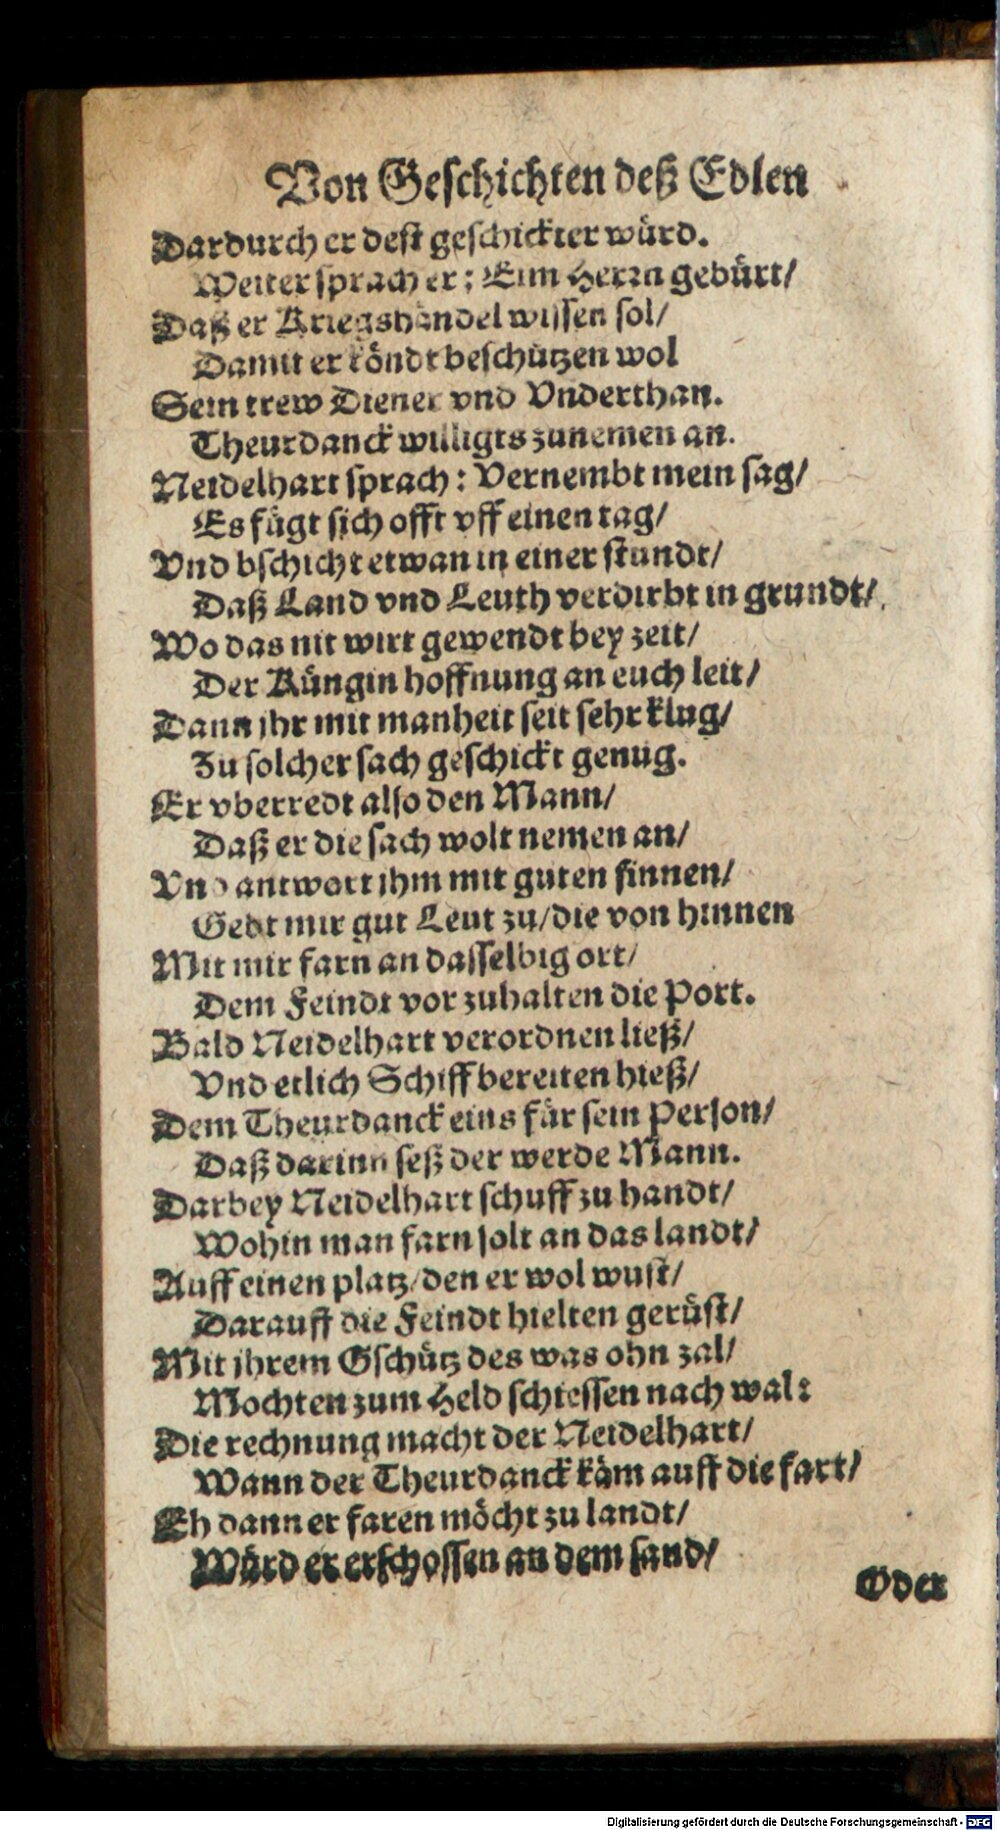 Von Geschichten deß Edlen
Dardurch er dest geschickter würd.
Weiter sprach er: Eim Herrn gebürt/
Daß er Kriegshändel wissen sol/
Damit er köndt beschützen wol
Sein trew Diener vnd Vnderthan.
Theurdanck willigts zunemen an.
Neidelhart sprach: Vernembt mein sag/
Es fügt sich offt vff einen tag/
Vnd bschicht etwan in einer stundt/
Daß Land vnd Leuth verdirbt in grundt/
Wo das nit wirt gewendt bey zeit/
Der Küngin hoffnung an euch leit/
Dann jhr mit manheit seit sehr klug/
Zu solcher sach geschickt genug.
Er vberredt also den Mann/
Daß er die sach wolt nemen an/
Vnd antwort jhm mit guten sinnen/
Gebt mir gut Leut zu/die von hinnen
Mit mir farn an dasselbig ort/
Dem Feindt vor zuhalten die Port.
Bald Neidelhart verordnen ließ/
Vnd etlich Schiff bereiten hieß/
Dem Theurdanck eins für sein Person/
Daß darinn seß der werde Mann.
Darbey Neidelhart schuff zu handt/
Wohin man farn solt an das landt/
Auff einen platz/den er wol wust/
Darauff die Feindt hielten gerüst/
Mit jhrem Gschütz des was ohn zal/
Mochten zum Held schiessen nach wal:
Die rechnung macht der Neidelhart/
Wann der Theurdanck käm auff die fart/
Eh dann er faren möcht zu landt/
Würd er erschossen an dem sand/
Oder
Digitalisierung gefördert durch die Deutsche Forschungsgemeinschaft - DFG